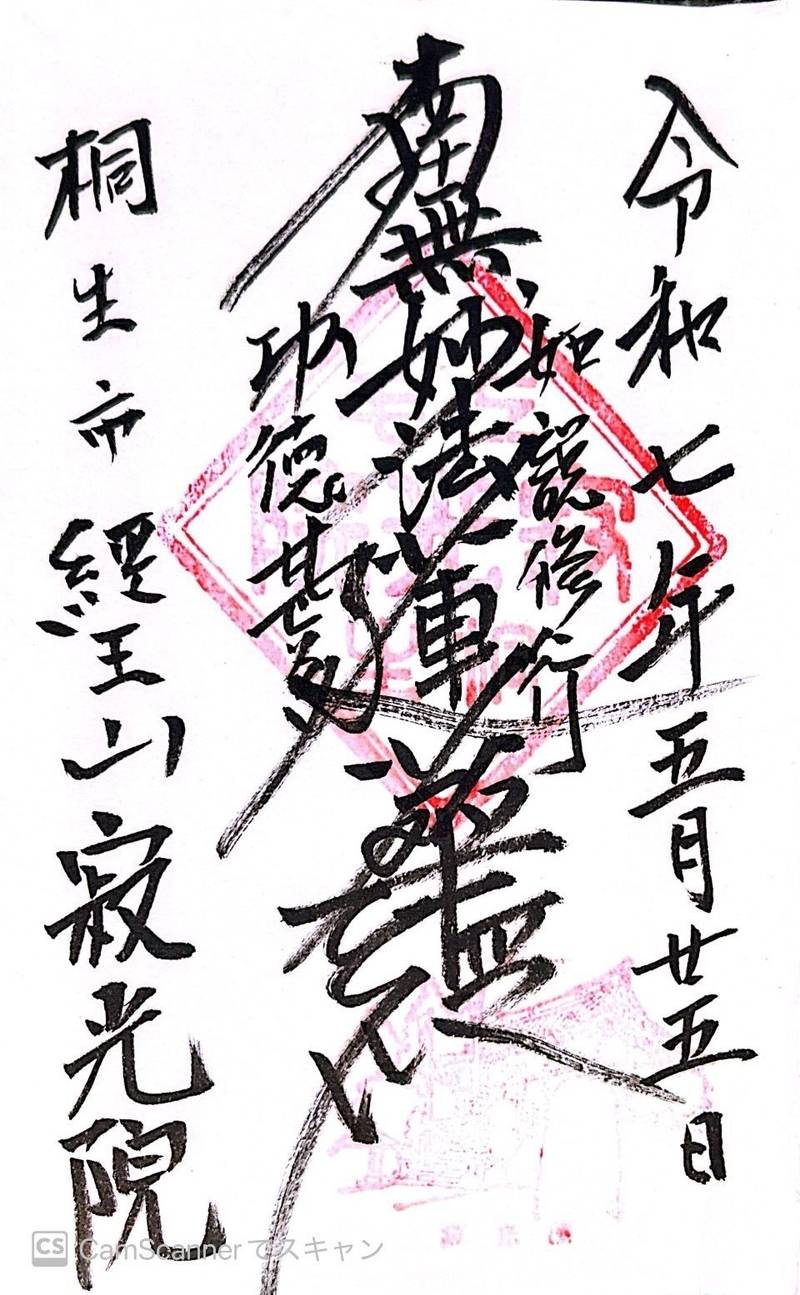 令和七年五月廿五日
如説修行
南無妙法蓮華経
功徳甚多
桐生市 経王山 寂光院
CS CamScannerでスキャン